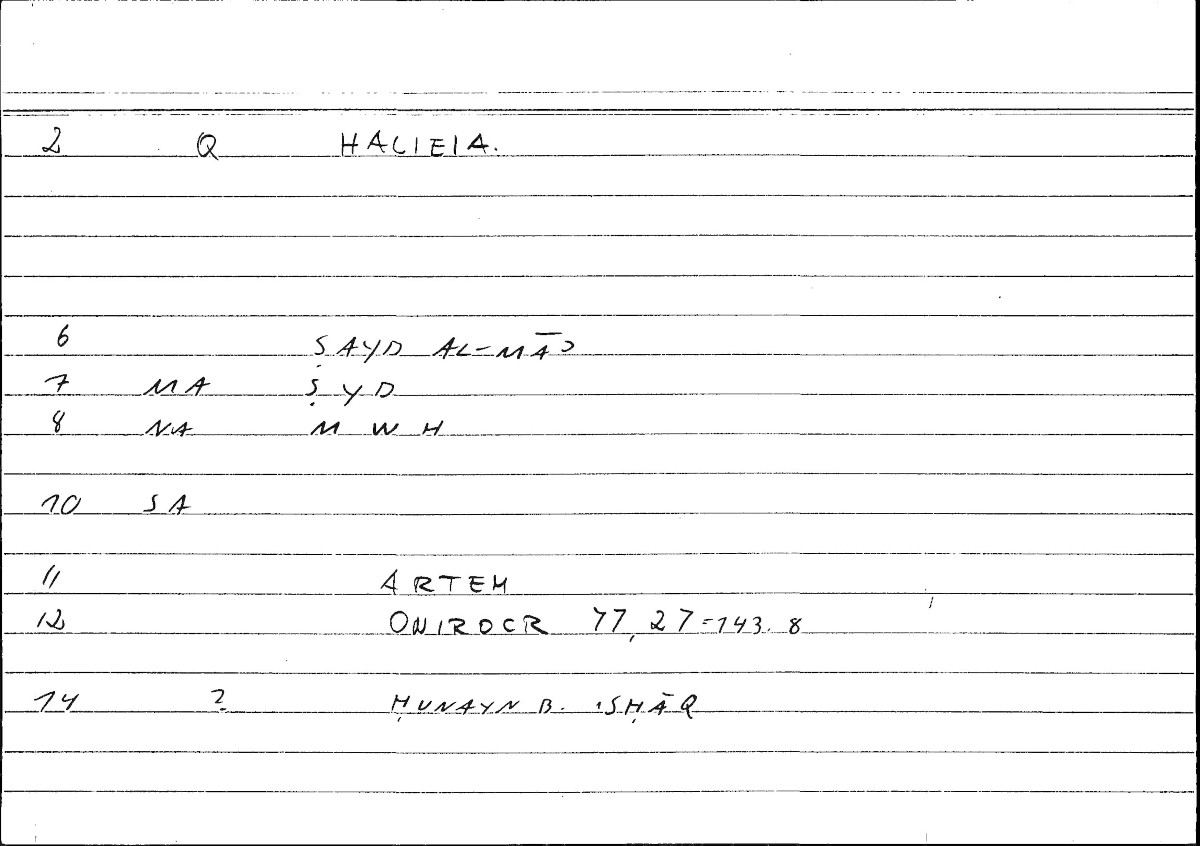 2 Q HALIEIA.
6 ṢAYD AL-MĀʾ
7 MA ṢYD
8 NA MWH
10 SA
11 ARTEM
12 ONIROCR 77,27=143.8
14 ? ḤUNAYN B. ISḤĀQ